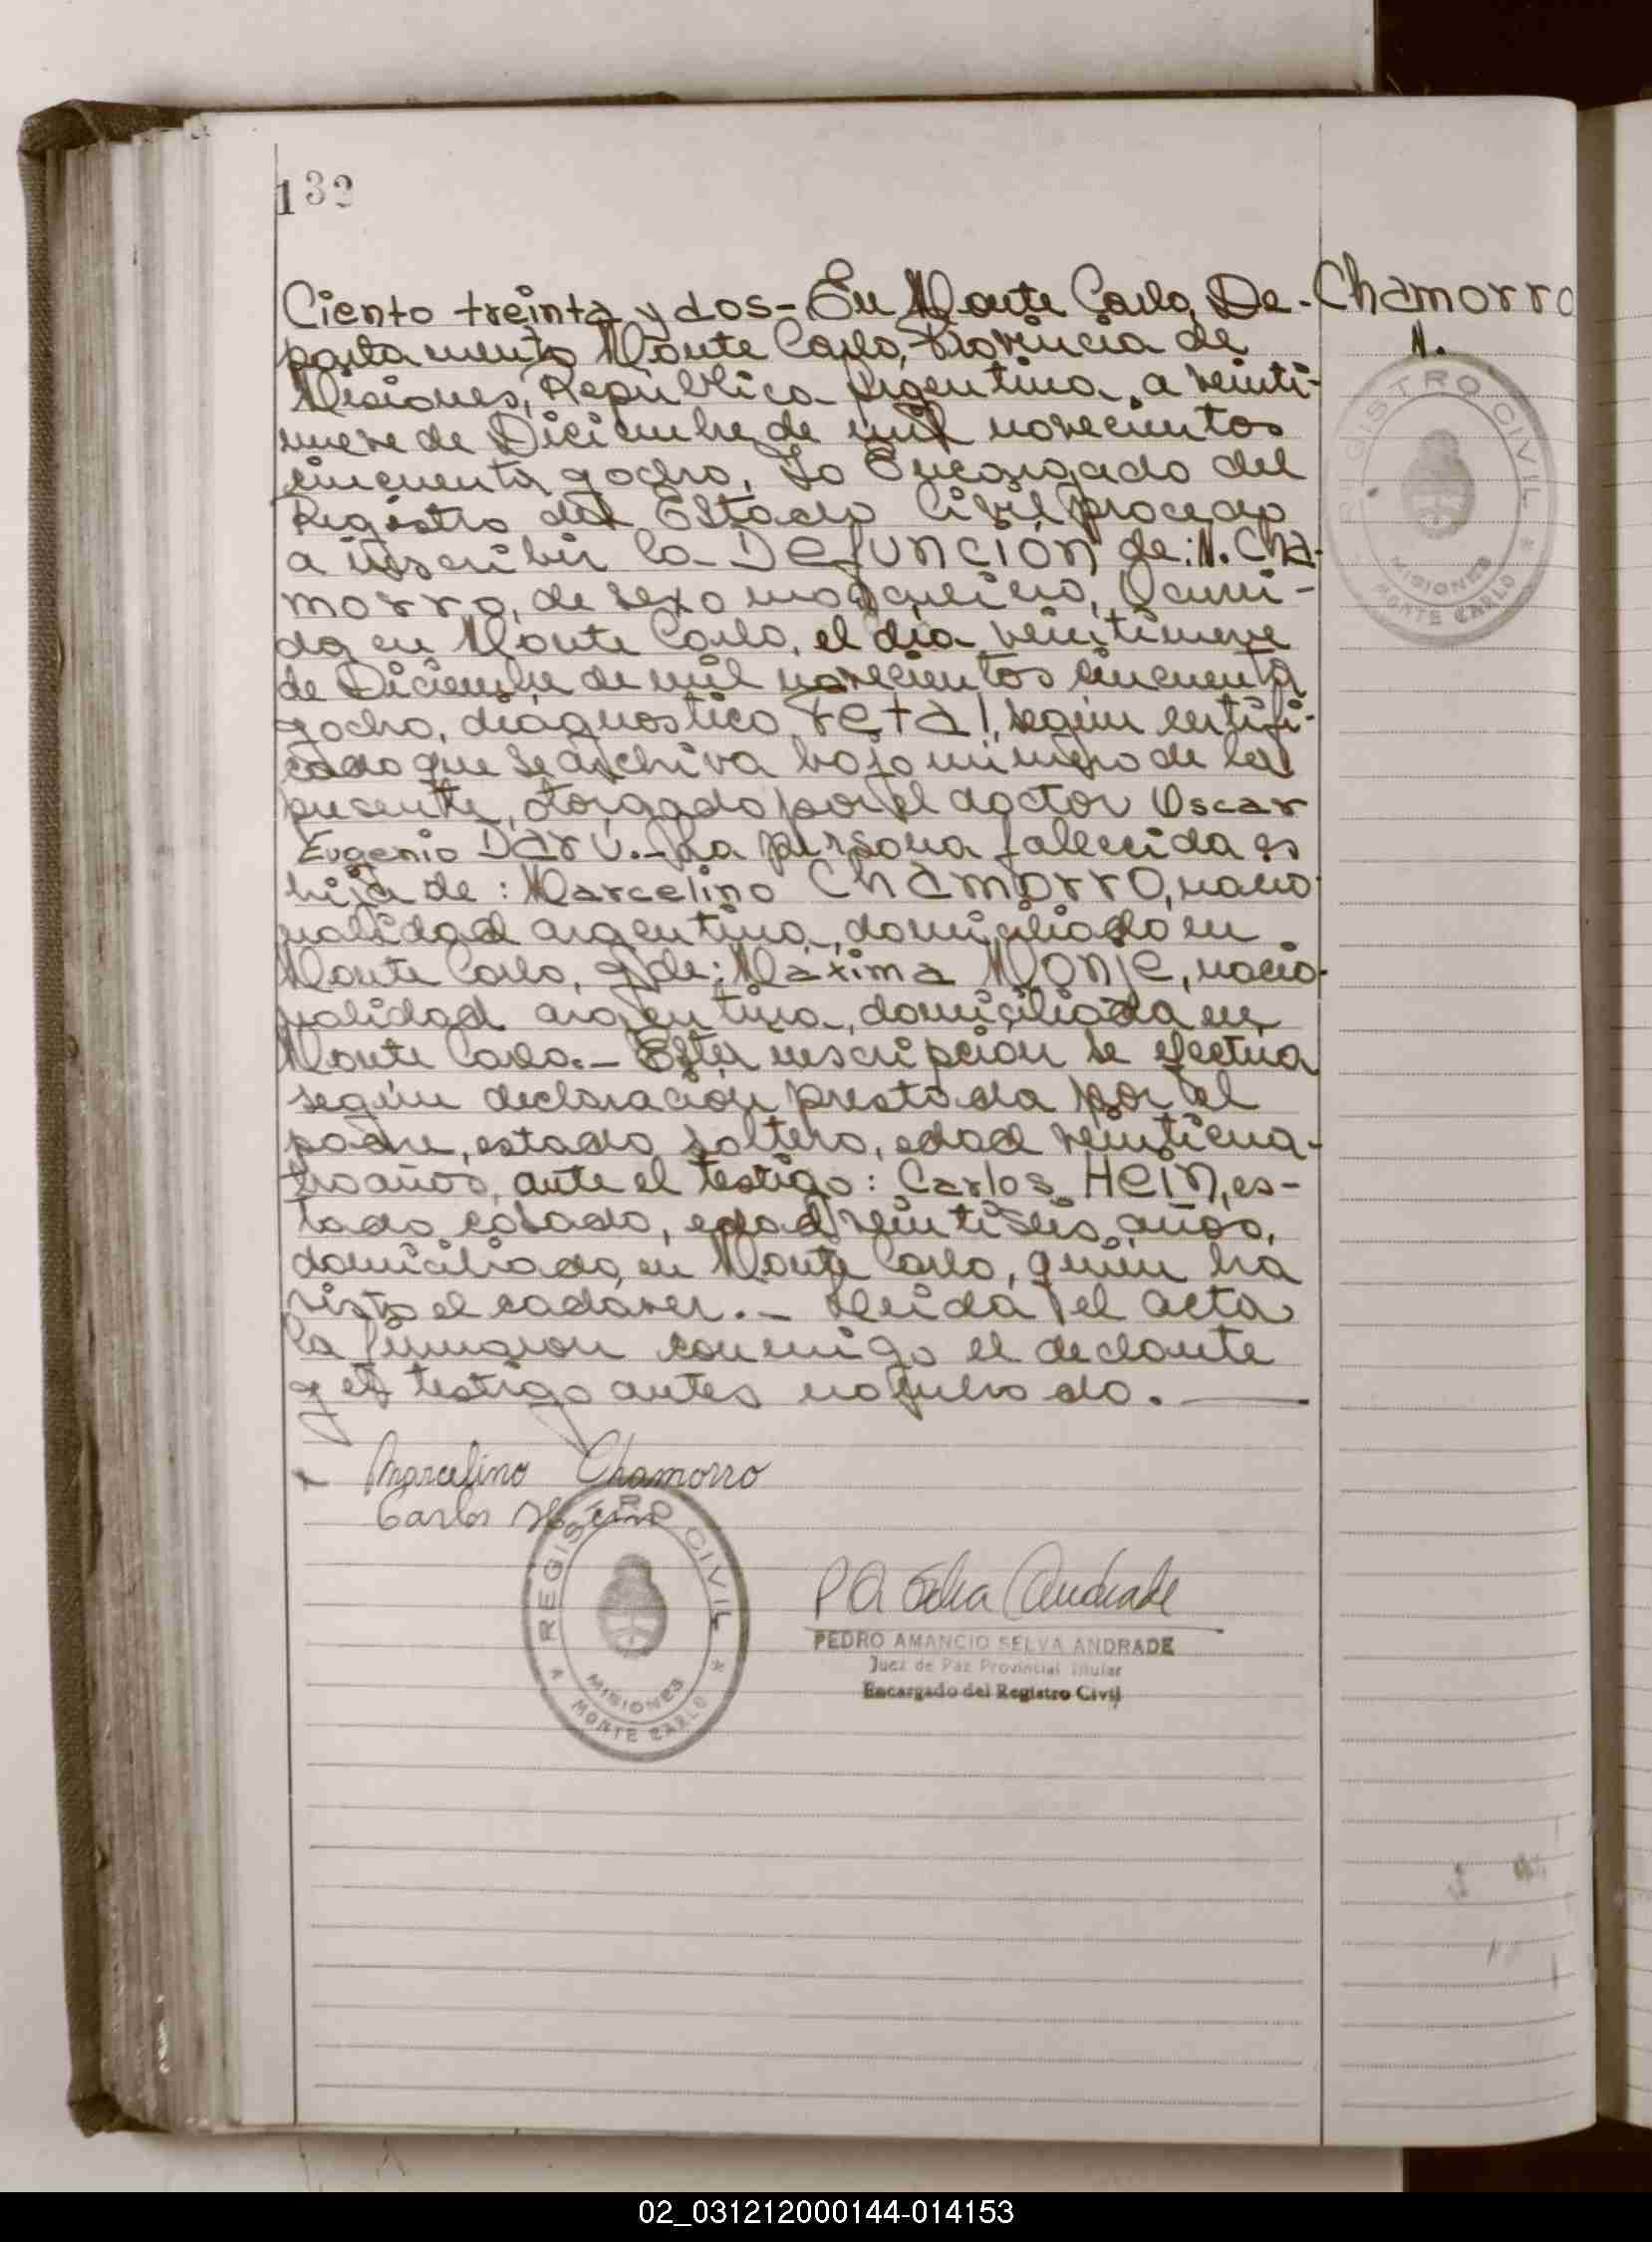 132
Ciento treinta y dos - En Monte Carlo, De-
partamento Monte Carlo, Provincia de
Misiones, República Argentina, a veinti-
nueve de Diciembre de mil novecientos
cincuenta y ocho, Yo Encargado del
Registro del Estado Civil procedo
a inscribir la Defunción de: N. Cha-
morro, de sexo masculino, Ocurri-
da en Monte Carlo, el día veintinueve
de Diciembre de mil novecientos cincuenta
y ocho, diagnostico Fetal, según certifi-
cado que se archiva bajo número de la
presente, otorgado por el doctor Oscar
Eugenio Darú.- La persona fallecida es
hija de: Marcelino Chamorro, nacio-
nalidad argentina, domiciliado en
Monte Carlo, y de: Máxima Monje, nacio-
nalidad argentina, domiciliada en
Monte Carlo.- Esta inscripción se efectua
según declaración prestada por el
padre, estado soltero, edad veinticua-
tro años, ante el testigo: Carlos Hein, es-
tado casado, edad veintiseis años,
domiciliado en Monte Carlo, quien ha
visto el cadaver.- Leida el acta
la firmaron conmigo el declante
y el testigo antes nombrado.
Chamorro
N.
REGISTRO CIVIL
MISIONES
MONTE CARLO
Marcelino Chamorro
Carlos Hein
REGISTRO CIVIL
MISIONES
MONTE CARLO
P A Selva Andrade
PEDRO AMANCIO SELVA ANDRADE
Juez de Paz Provincial Titular
Encargado del Registro Civil
02_031212000144-014153